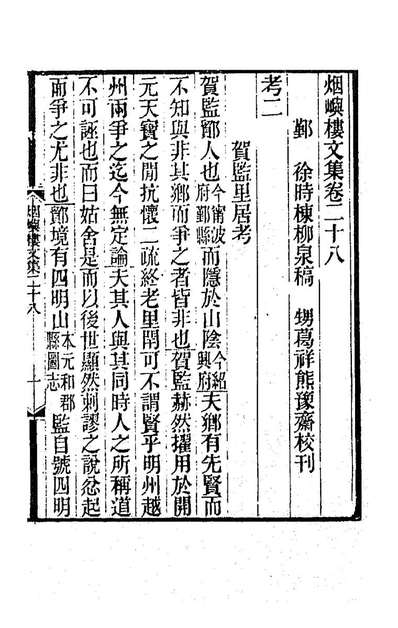 烟嶼樓文集卷二十八
鄞　徐時棟柳泉稿　甥葛祥熊豫齋校刊
考二
賀監里居考
賀監鄮人也今甯波府鄞縣而隱於山陰今紹興府夫鄉有先賢而
不知與非其鄉而爭之者皆非也賀監赫然擢用於開
元天寶之閒抗懷二疏終老里閈可不謂賢乎明州越
州兩爭之迄今無定論夫其人與其同時人之所稱道
不可誣也而曰姑舍是而以後世顯然刺謬之說忿起
而爭之尤非也鄮境有四明山本元和郡縣圖志監自號四明
烟嶼樓文集二十八
一